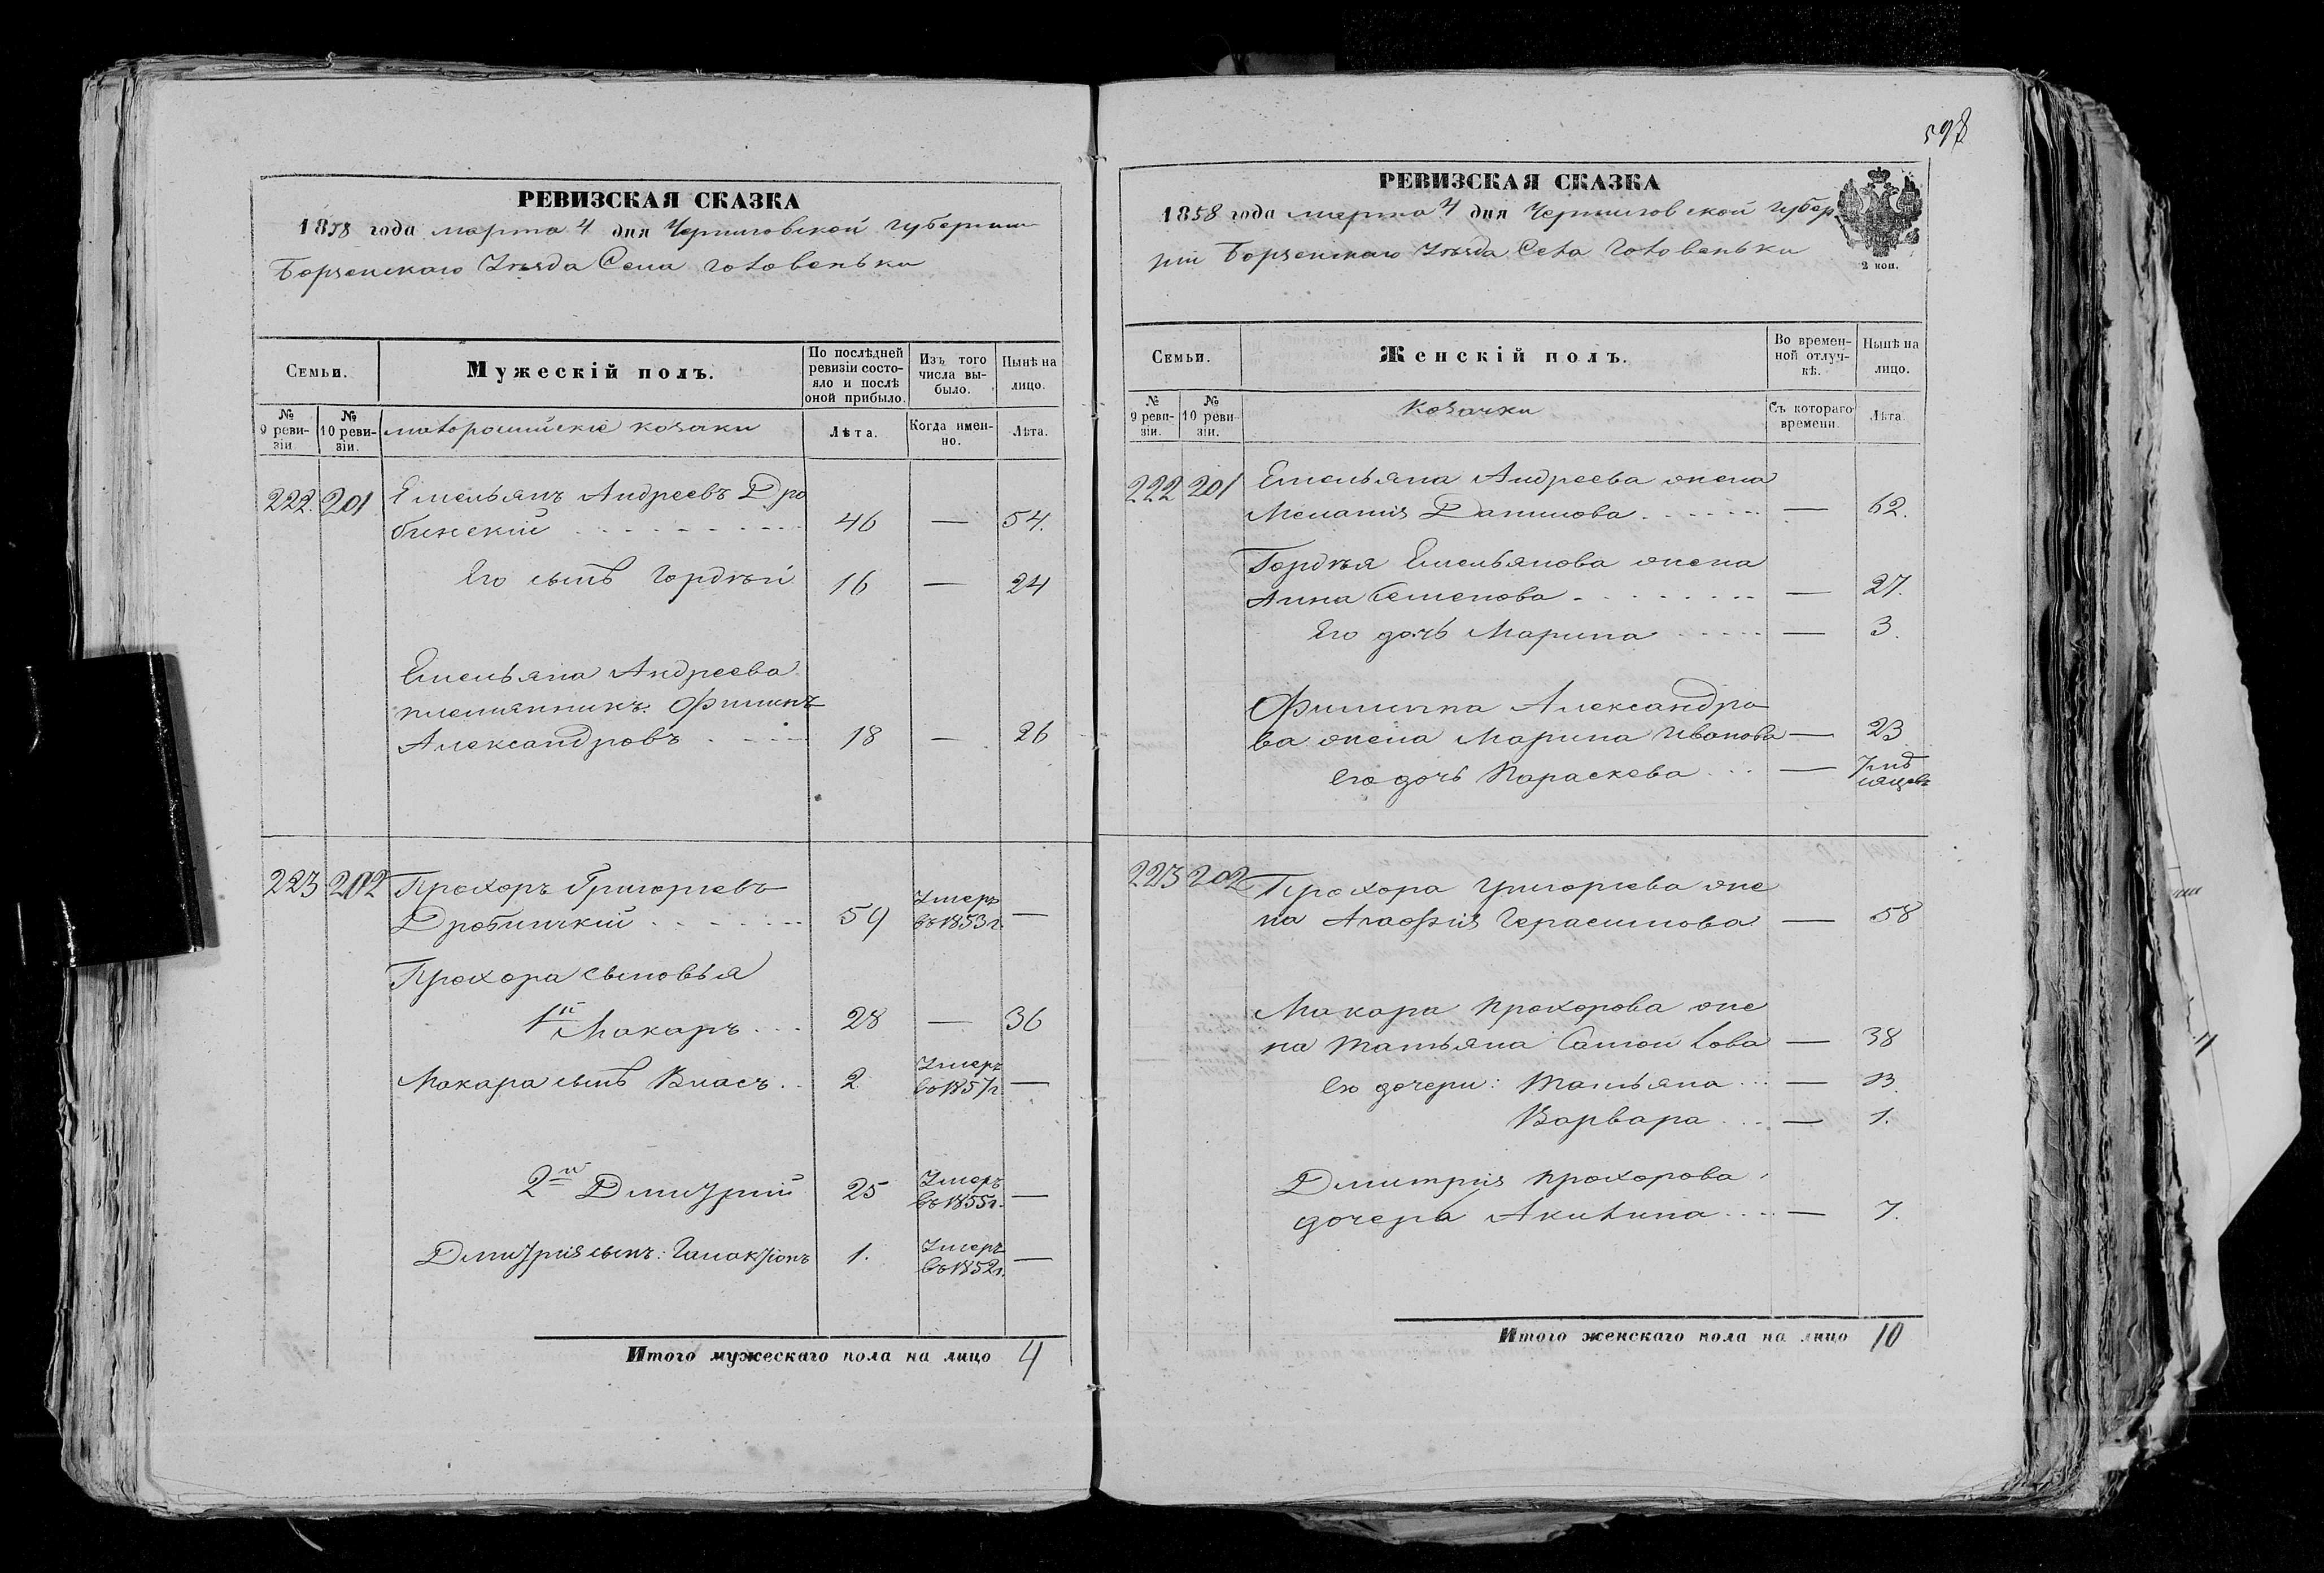 РЕВИЗСКАЯ СКАЗКА
1858 года марта 4 дня Черниговской губернии
Борзенскаго Уѣзда Села Головеньки
Семьи.
Мужескій полъ.
По послѣдней ревизіи состояло и послѣ оной прибыло.
Изъ того числа выбыло.
Нынѣ на лицо.
№ 9 ревизіи.
№ 10 ревизіи.
малороссійскіе козаки
Лѣта.
Когда именно.
Лѣта.
222. 201 Емельянъ Андреевъ Дро
бинскій 46 — 54.
Его сынъ Гордѣй 16 — 24
Емельяна Андреева
племянникъ Филипъ
Александровъ 18 — 26
223 202 Прохоръ Григорьевъ
Дробинскій 59 Умеръ въ 1853 г. —
Прохора сыновья
1й Макаръ 28 — 36
Макара сынъ Власъ 2 Умеръ въ 1857 г. —
2й Дмитрий 25 Умеръ въ 1855 г. —
Дмитрия сынъ: Галактіонъ 1. Умеръ въ 1852 г. —
Итого мужескаго пола на лицо 4
РЕВИЗСКАЯ СКАЗКА
1858 года марта 4 дня Черниговской губер
ніи Борзенскаго Уѣзда Села Головеньки
2 коп.
Семьи.
Женскій полъ.
Во временной отлучкѣ.
Нынѣ на лицо.
№ 9 ревизіи.
№ 10 ревизіи.
Козачки
Съ котораго времени.
Лѣта.
222 201 Емельяна Андреева жена
Меланія Данилова — 62.
Гордѣя Емельянова жена
Анна Семенова — 27.
Его дочь Марина — 3.
Филиппа Александро
ва жена Марина Иванова — 23
его дочь Параскева — 7 мѣ
сяцевъ
223 202 Прохора Григорьева же
на Агафія Герасимова — 58
Макара Прохорова же
на Татьяна Самойлова — 38
Ею дочери: Татьяна — 13.
Варвара — 1.
Дмитрія Прохорова
дочерь Акилина — 7.
Итого женскаго пола на лицо 10